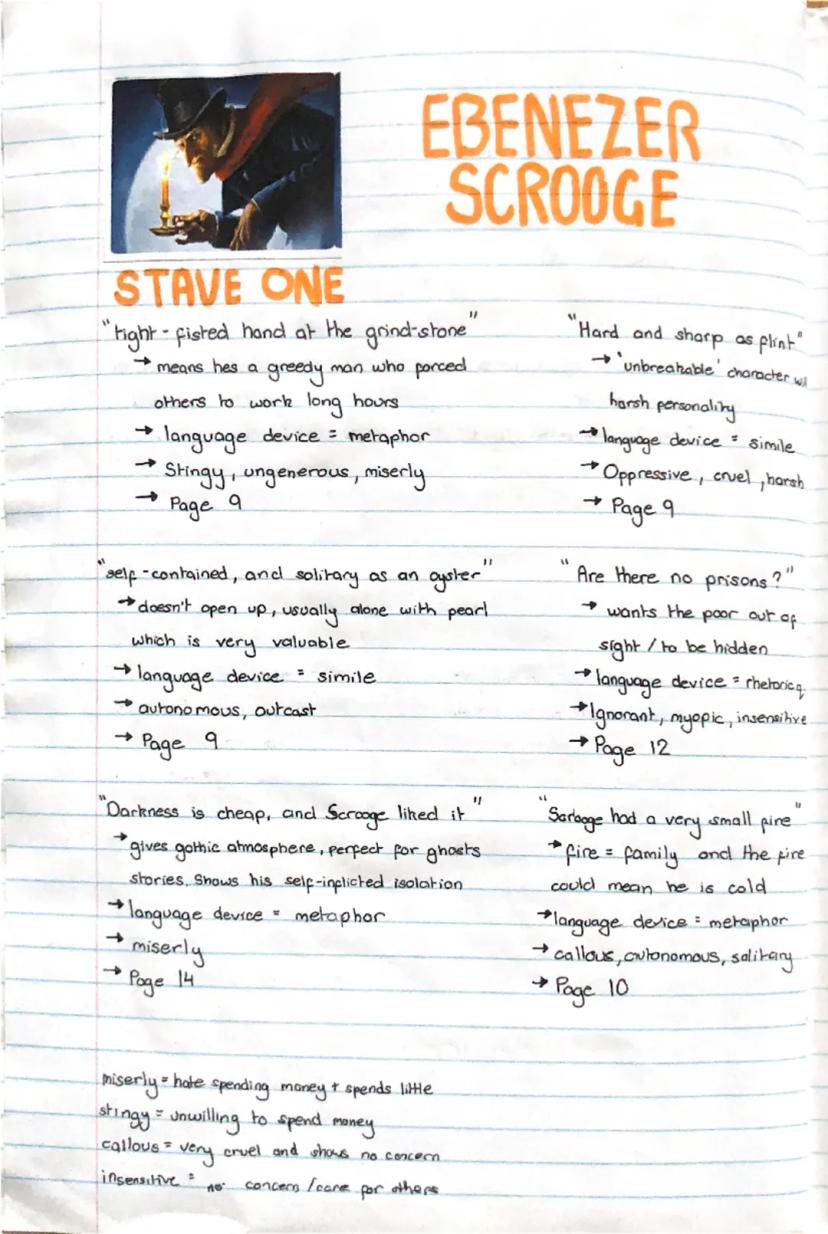 EBENEZER
SCROOGE
STAVE ONE
"tight-fisted hand at the grind-stone"
→ means hes a greedy man who forced
others to work long hours
→ language device = metaphor
→ Stingy, ungenerous, miserly
→ Page 9
"Hard and sharp as flint"
→ 'unbreakable' character wi
harsh personality
→ language device = simile
→ Oppressive, cruel, harsh
→ Page 9
"self-contained, and solitary as an oyster"
→ doesn't open up, usually alone with pearl
which is very valuable
→ language device = simile
→ autonomous, outcast
→ Page 9
"Are there no prisons?"
→ wants the poor out of
sight / to be hidden
→ language device = rhetoric q.
→ Ignorant, myopic, insensitive
→ Page 12
"Darkness is cheap, and Scrooge liked it"
→ gives gothic atmosphere, perfect for ghosts
stories. Shows his self-inflicted isolation
→ language device = metaphor
→ miserly
→ Page 14
"Scrooge had a very small fire"
→ fire = family and the fire
could mean he is cold
→ language device = metaphor
→ callous, autonomous, solitary
→ Page 10
miserly = hate spending money + spends little
stingy = unwilling to spend money
callous = very cruel and shows no concern
insensitive = no concern / care for others